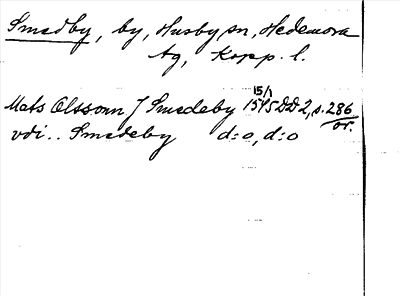 Smedby, by, Husby sn, Hedemora
tg, Kopp. l.
15/1
Mats Olssonn J Smedeby 1545 DD 2, s. 286
or.
vdi .. Smedeby d:o, d:o